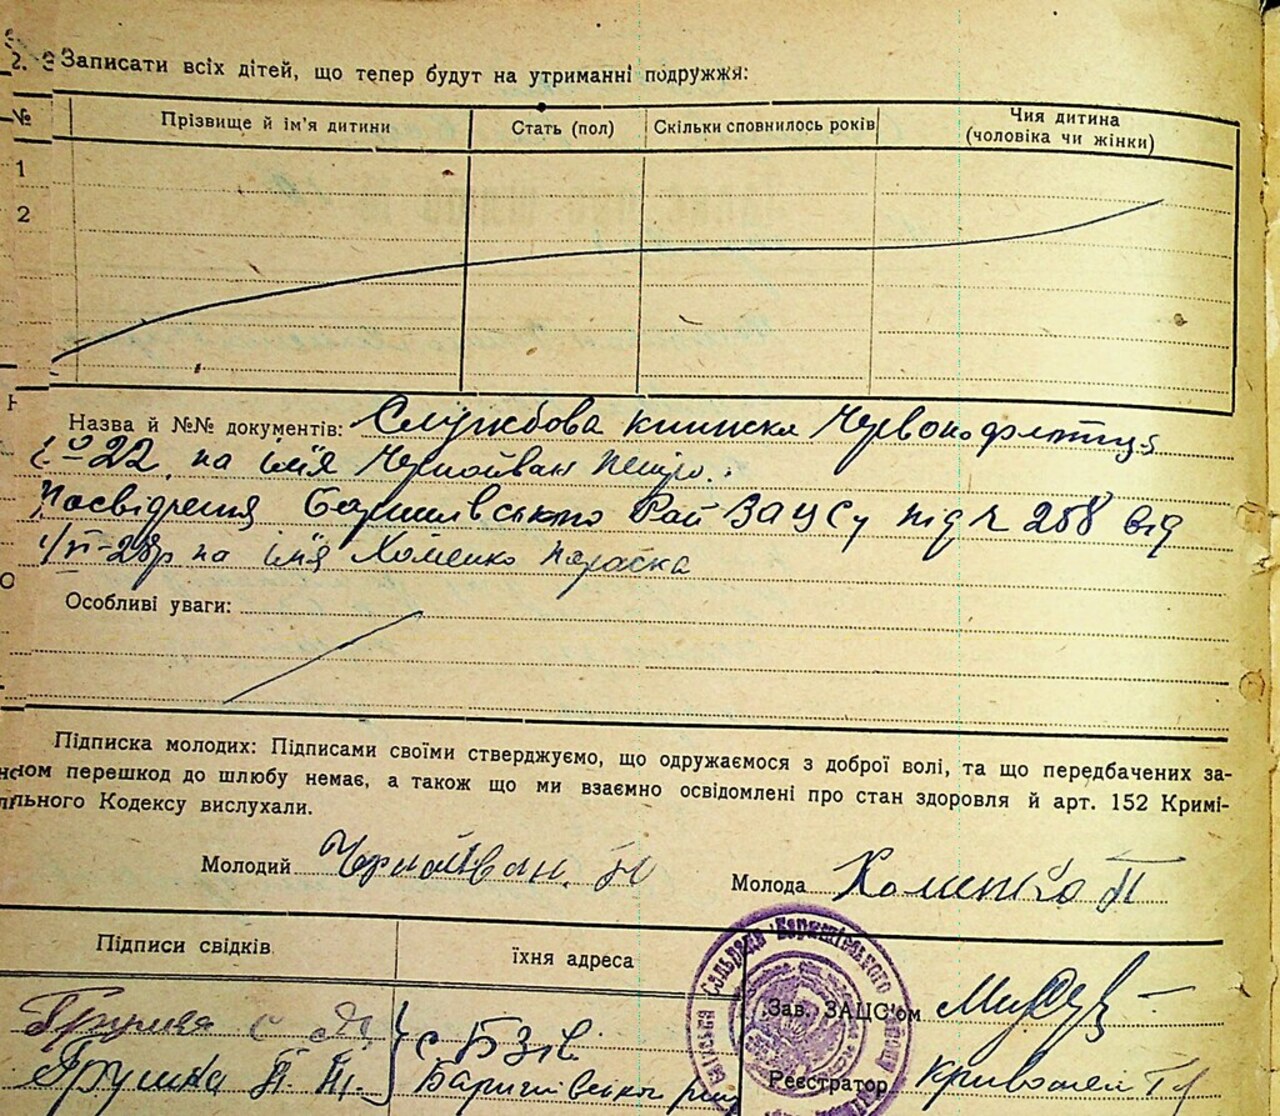 2. Записати всіх дітей, що тепер будут на утриманні подружжя:
№ Прізвище й ім'я дитини Стать (пол) Скільки сповнилось років Чия дитина (чоловіка чи жінки)
1
2
Назва й №№ документів: Службова книжка Червонофлотця
№ 22 на ім'я Чернойван Петро.
Посвідчення Баришівського РайЗАЦСу під № 258 від
на ім'я Хоменко Параска
Особливі уваги:
Підписка молодих: Підписами своїми стверджуємо, що одружаємося з доброї волі, та що передбачених за-
ном перешкод до шлюбу немає, а також що ми взаємно освідомлені про стан здоровля й арт. 152 Кримі-
льного Кодексу вислухали.
Молодий Чернойван П Молода Хоменко П
Підписи свідків їхня адреса
Зав. ЗАЦС'ом
с Бзів
Грушка Баришівського
Реєстратор